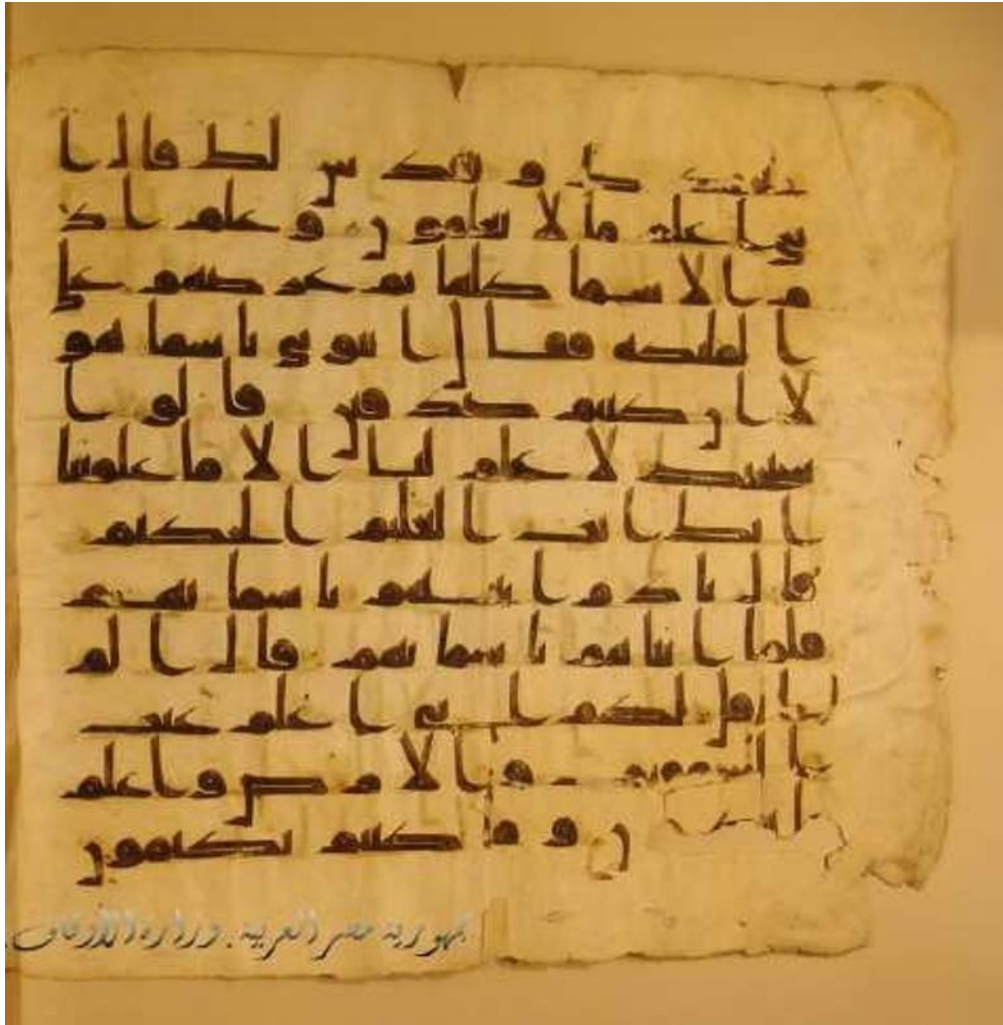 بحمدك و نقدس لك قال ا
ني اعلم ما لا تعلمون و علم اد
م الاسما كلها ثم عرضهم على
الملئكه فقال انبوني باسما هو
لا ان كنتم صدقين قالوا
سبحنك لا علم لنا الا ما علمتنا
انك انت العليم الحكيم
قال يادم انبيهم باسمايهم
فلما انباهم باسمايهم قال الم
اقل لكم اني اعلم غيب
السموت والارض واعلم
ما تبدون وما كنتم تكتمون
جمهورية مصر العربية . وزارة الأوقاف .